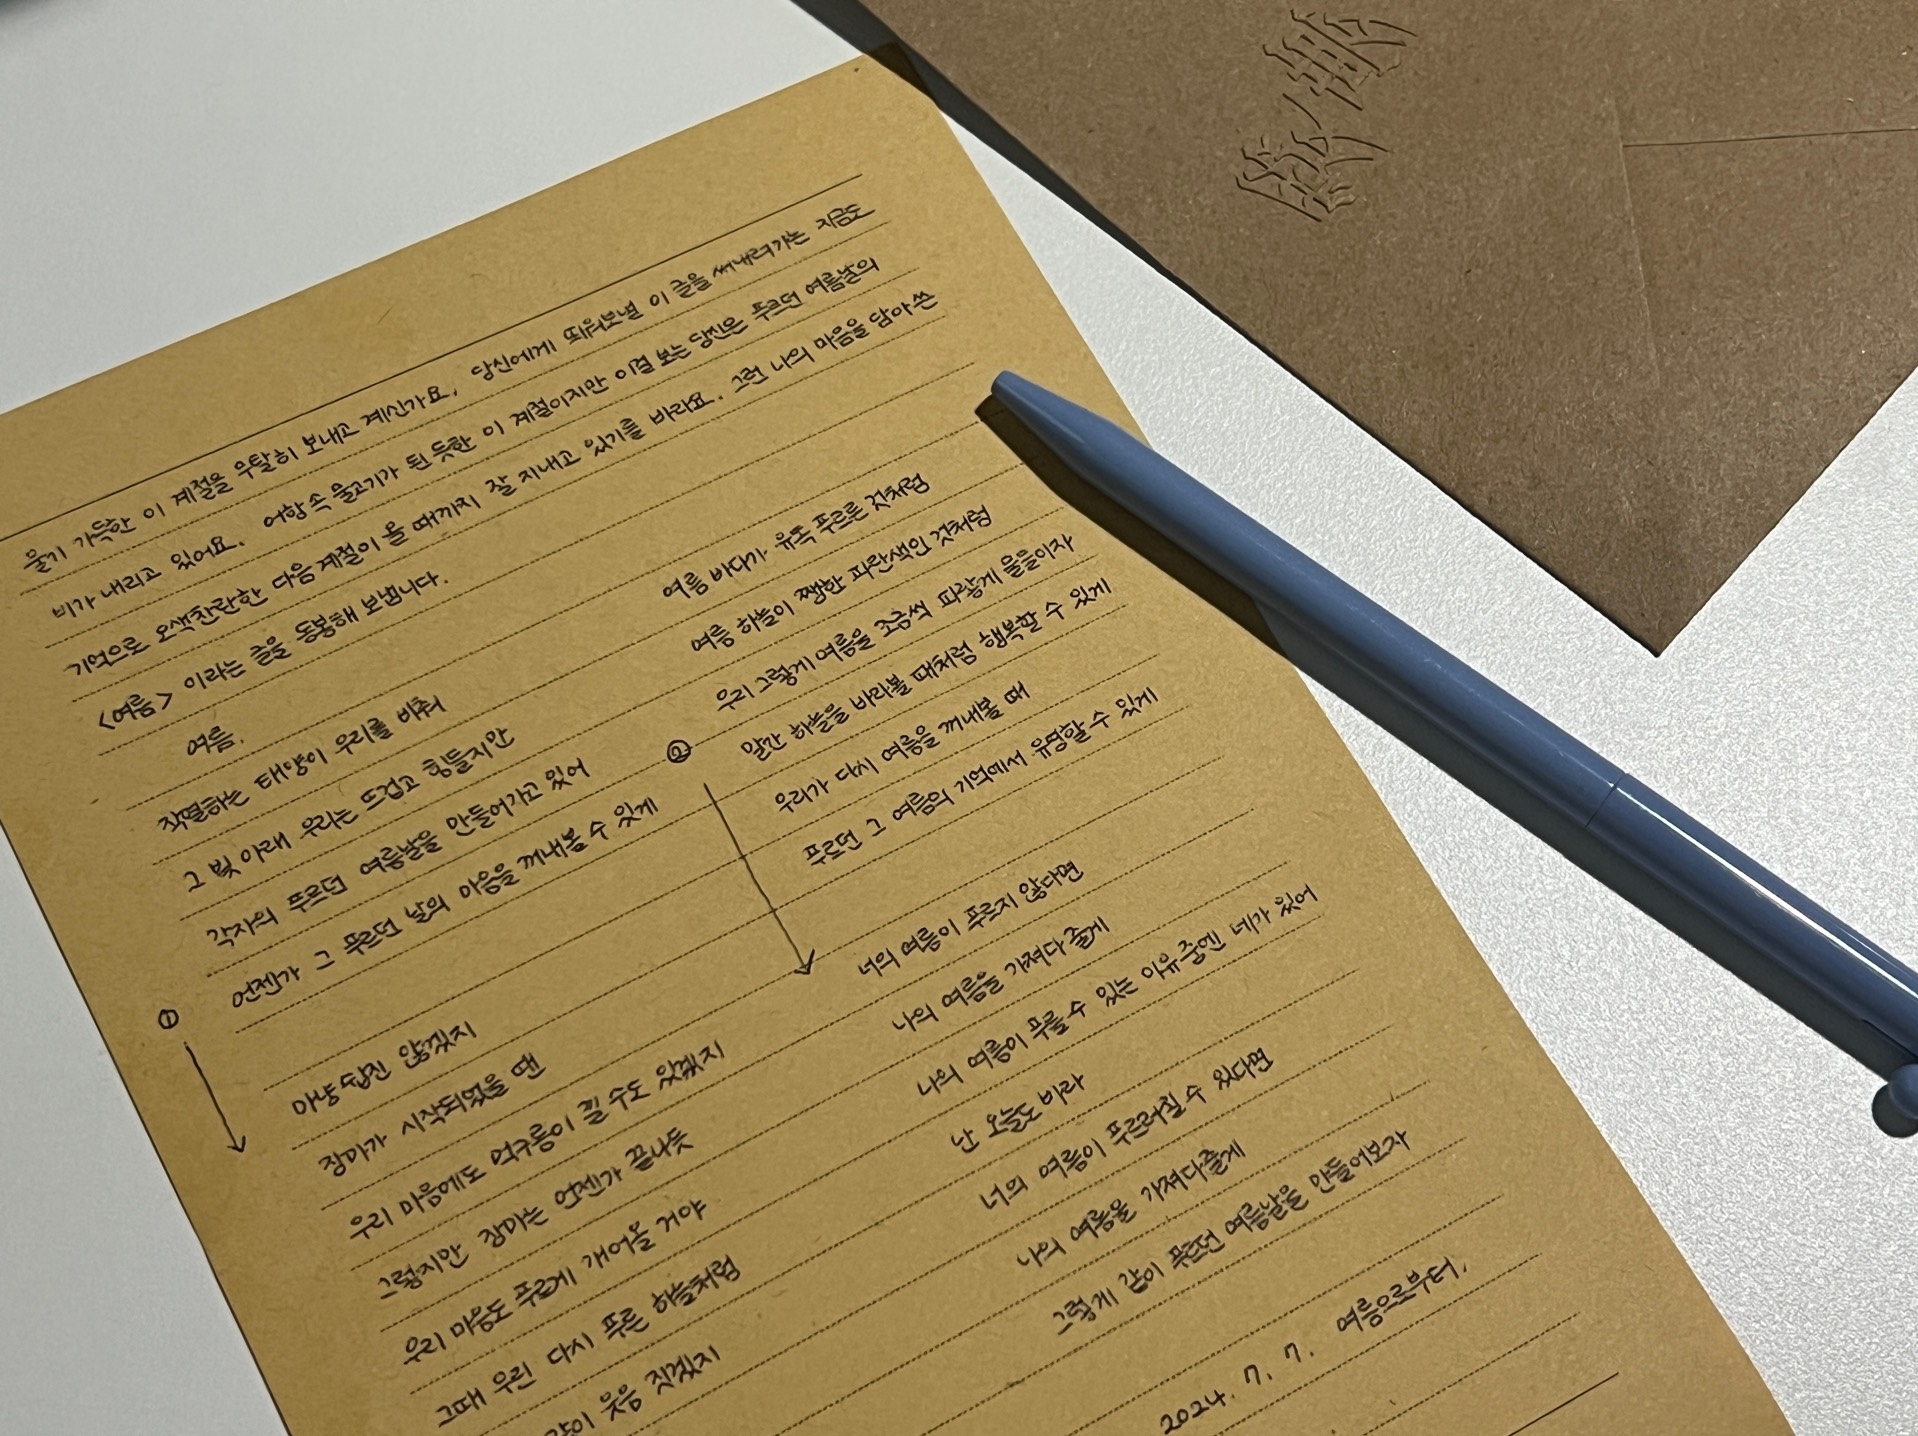 물기 가득한 이 계절을 무탈히 보내고 계신가요. 당신에게 띄워보낼 이 글을 써내려가는 지금도
비가 내리고 있어요. 어항 속 물고기가 된 듯한 이 계절이지만 이걸 보는 당신은 푸르던 여름날의
기억으로 오색찬란한 다음 계절이 올 때까지 잘 지내고 있기를 바라요. 그런 나의 마음을 담아 쓴
<여름> 이라는 글을 동봉해 보냅니다.
여름.
작열하는 태양이 우리를 비춰
그 빛 아래 우리는 뜨겁고 힘들지만
각자의 푸르던 여름날을 만들어가고 있어
언젠가 그 푸르던 날의 마음을 꺼내볼 수 있게
①
마냥 쉽진 않겠지
장마가 시작되었을 땐
우리 마음에도 먹구름이 낄 수도 있겠지
그렇지만 장마는 언젠가 끝나듯
우리 마음도 푸르게 개어올 거야
그때 우린 다시 푸른 하늘처럼
같이 웃음 짓겠지
②
여름 바다가 유독 푸르른 것처럼
여름 하늘이 쨍한 파란색인 것처럼
우리 그렇게 여름을 조금씩 파랗게 물들이자
맑간 하늘을 바라볼 때처럼 행복할 수 있게
우리가 다시 여름을 꺼내볼 때
푸르던 그 여름의 기억에서 유영할 수 있게
너의 여름이 푸르지 않다면
나의 여름을 가져다 줄게
나의 여름이 푸를 수 있는 이유 중엔 네가 있어
난 오늘도 바라
너의 여름이 푸르러질 수 있다면
나의 여름을 가져다줄게
그렇게 같이 푸르던 여름날을 만들어보자
2024. 7. 7. 여름으로부터.